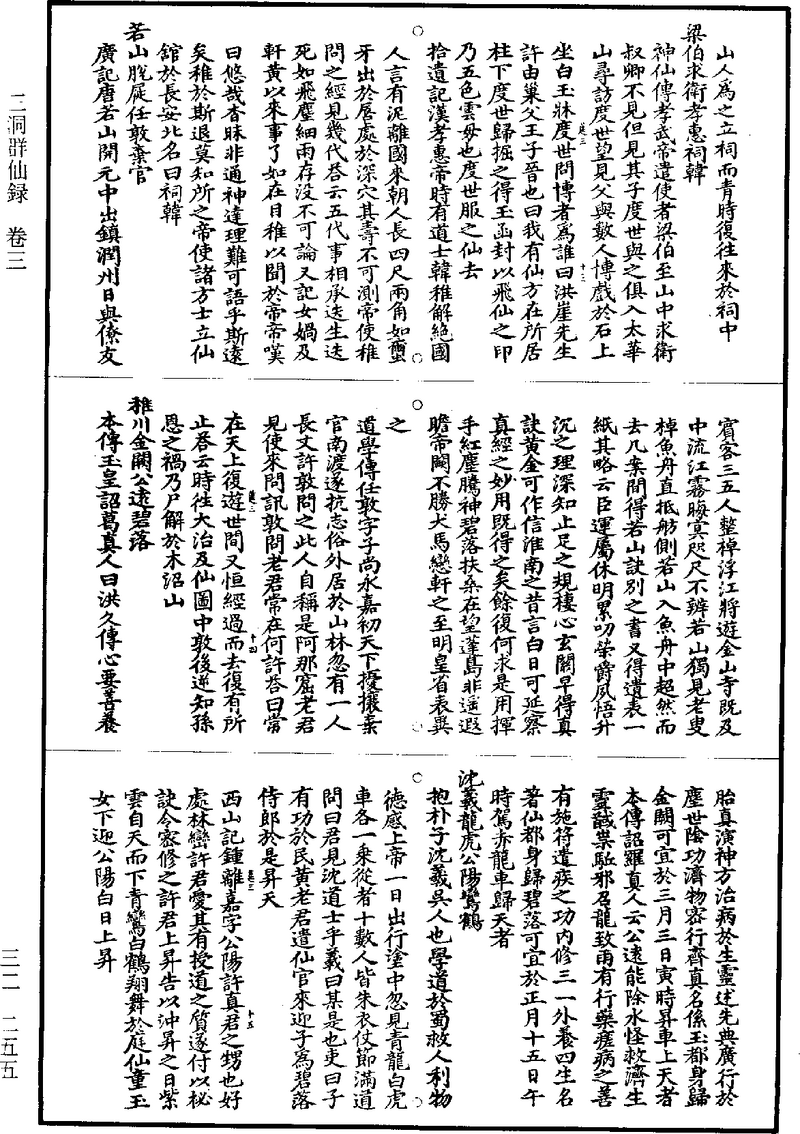 三洞群仙録　卷三
山人為之立祠而青時復往來於祠中
梁伯求衛孝惠祠韓
神仙傳孝武帝遣使者梁伯至山中求衛
叔卿不見但見其子度世與之俱入太華
山尋訪度世望見父與數人博戲於石上
坐白玉牀度世問博者為誰曰洪崖先生
許由巢父王子晉也曰我有仙方在所居
柱下度世歸掘之得玉函封以飛仙之印
乃五色雲母也度世服之仙去
拾遺記漢孝惠帝時有道士韓稚解絕國
人言有泥離國來朝人長四尺兩角如蠒
牙出於唇處於深穴其壽不可測帝使稚
問之經見幾代荅云五代事相承迭生迭
死如飛塵細雨存没不可論又記女媧及
軒黃以來事了如在目稚以聞於帝帝嘆
曰悠哉杳昧非通神達理難可語乎斯遠
矣稚於斯退莫知所之帝使諸方士立仙
舘於長安北名曰祠韓
若山脫屣任敦棄官
廣記唐若山開元中出鎮潤州日與僚友
賓客三五人整棹浮江將遊金山寺既及
中流江霧晦冥咫尺不辨若山獨見老叟
棹魚舟直抵舫側若山入魚舟中超然而
去几案間得若山訣別之書又得遺表一
紙其略云臣運屬休明累叨榮爵夙悟升
沉之理深知止足之規棲心玄關早得真
訣黃金可作信淮南之昔言白日可延察
真經之妙用既得之矣餘復何求是用揮
手紅塵騰神碧落扶桑在望蓬島非遙遐
瞻帝闕不勝犬馬戀軒之至明皇省表異
之
道學傳任敦字子尚永嘉初天下擾攘棄
官南渡遂抗志俗外居於山林忽有一人
長丈許敦問之此人自稱是阿那窟老君
見使來問訊敦問老君常在何許荅曰常
在天上復遊世間又恒經過而去復有所
止荅云時往大治及仙圖中敦後逆知孫
恩之禍乃尸解於木沼山
稚川金闕公遠碧落
本傳玉皇詔葛真人曰洪久傳心要善養
胎真演神方治病於生靈述先典廣行於
塵世陰功濟物密行齊真名係玉都身歸
金闕可宜於三月三日寅時昇車上天者
本傳詔羅真人云公遠能除水怪救濟生
靈誠祟駈邪召龍致雨有行藥瘥病之善
有施符遣疾之功內修三一外養四生名
著仙都身歸碧落可宜於正月十五日午
時駕赤龍車歸天者
沈羲龍虎公陽鸞鶴
抱朴子沈羲吳人也學道於蜀救人利物
德感上帝一日出行塗中忽見青龍白虎
車各一乘從者十數人皆朱衣仗節滿道
問曰君見沈道士乎羲曰某是也吏曰子
有功於民黃老君遣仙官來迎子為碧落
侍郎於是昇天
西山記鍾離嘉字公陽許真君之甥也好
處林巒許君愛其有授道之質遂付以祕
訣令密修之許君上昇告以沖昇之日紫
雲自天而下青鸞白鶴翔舞於庭仙童玉
女下迎公陽白日上昇
三二—二五五